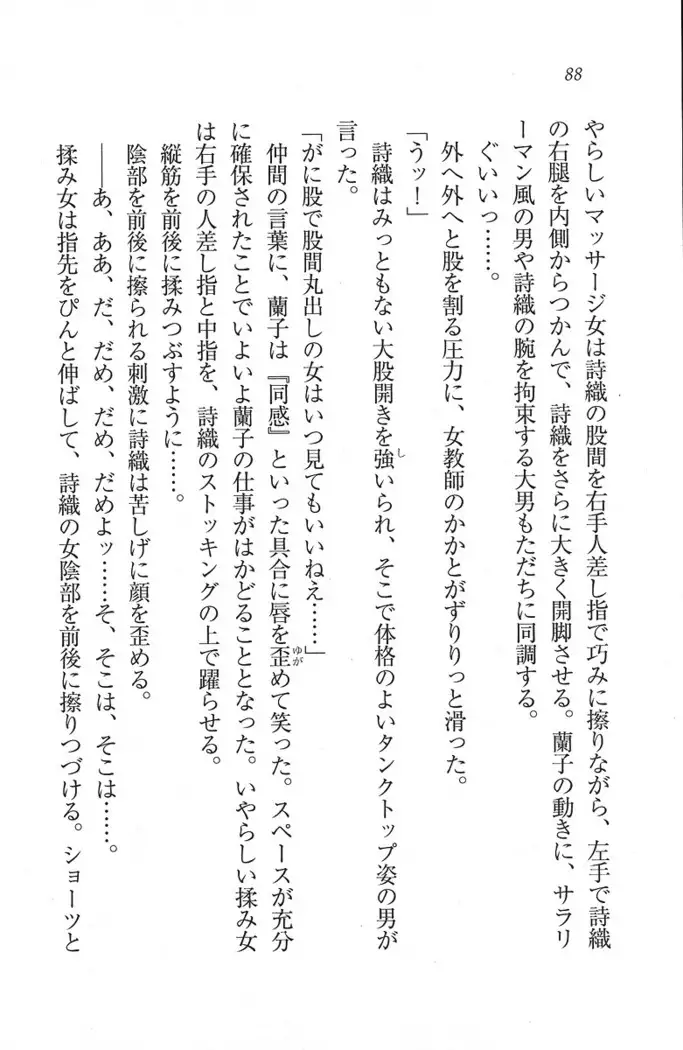 88
やらしいマッサージ女は詩織の股間を右手人差し指で巧みに擦りながら、左手で詩織
の右腿を内側からつかんで、詩織をさらに大きく開脚させる。蘭子の動きに、サラリ
ーマン風の男や詩織の腕を拘束する大男もただちに同調する。
ぐいいっ……。
外へ外へと股を割る圧力に、女教師のかかとがずりりっと滑った。
「うッ！」
詩織はみっともない大股開きを強いられ、そこで体格のよいタンクトップ姿の男が
言った。
「がに股で股間丸出しの女はいつ見てもいいねえ……」
仲間の言葉に、蘭子は『同感』といった具合に唇を歪めて笑った。スペースが充分
に確保されたことでいよいよ蘭子の仕事がはかどることとなった。いやらしい揉み女
は右手の人差し指と中指を、詩織のストッキングの上で躍らせる。
縦筋を前後に揉みつぶすように……。
陰部を前後に擦られる刺激に詩織は苦しげに顔を歪める。
――あ、ああ、だ、だめ、だめ、だめよッ……そ、そこは、そこは……。
揉み女は指先をぴんと伸ばして、詩織の女陰部を前後に擦りつづける。ショーツと